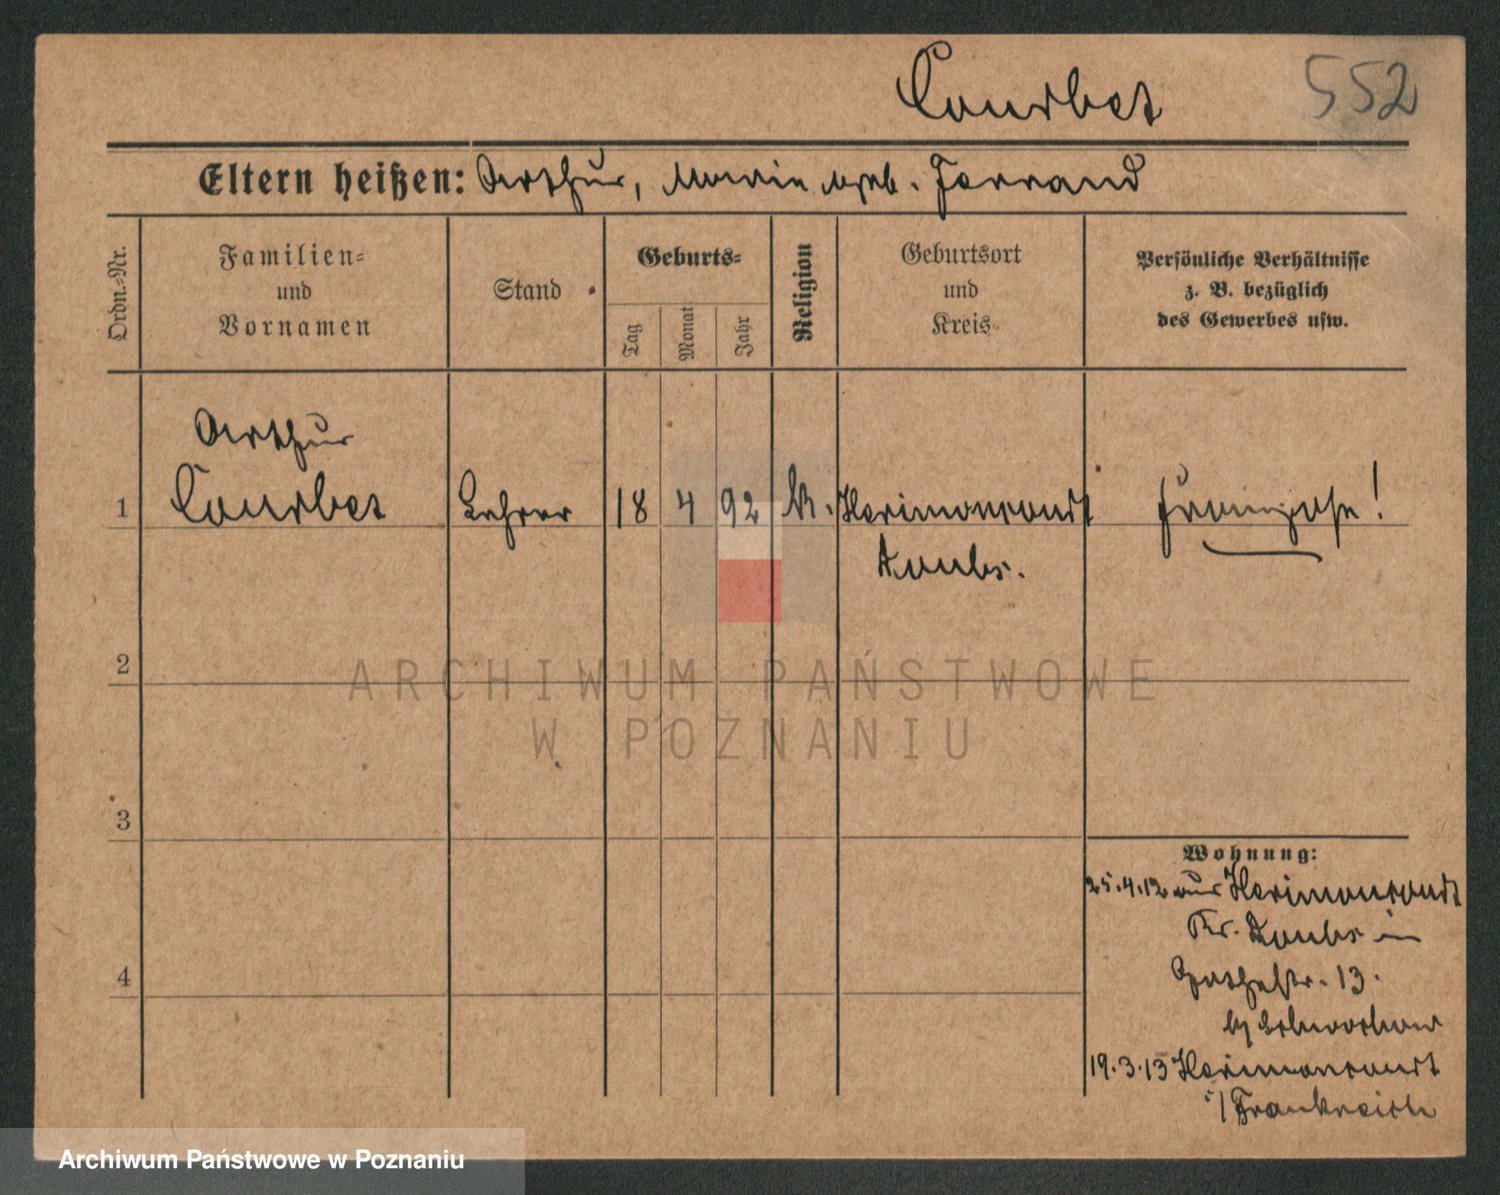 Courbet
552
Eltern heißen: Arthur, Marie geb. Ferrand
Ordn.-Nr.
Familien-
und
Vornamen
Stand
Geburts-
Tag
Monat
Jahr
Religion
Geburtsort
und
Kreis
Persönliche Verhältnisse
z. B. bezüglich
des Gewerbes usw.
Arthur
1 Courbet Lehrer 18 4 92 Herimoncourt Franzose!
Doubs.
2
ARCHIWUM PAŃSTWOWE
W POZNANIU
3
Wohnung:
25.4.12 aus Herimoncourt
Kr. Doubs in
Goethestr. 13.
4
19.3.13 Herimoncourt
i/Frankreich
Archiwum Państwowe w Poznaniu